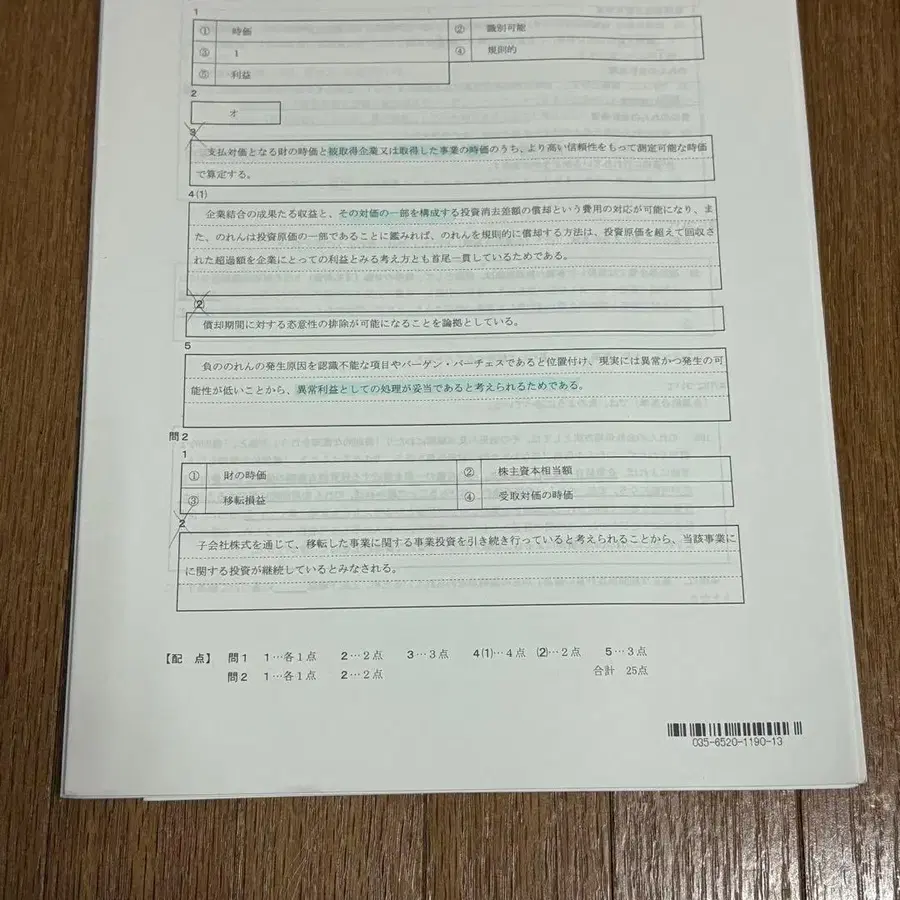 1
① 時価 ② 識別可能
③ 1 ④ 規則的
⑤ 利益
2
オ
3
支払対価となる財の時価と被取得企業又は取得した事業の時価のうち、より高い信頼性をもって測定可能な時価
で算定する。
4⑴
企業結合の成果たる収益と、その対価の一部を構成する投資消去差額の償却という費用の対応が可能になり、ま
た、のれんは投資原価の一部であることに鑑みれば、のれんを規則的に償却する方法は、投資原価を超えて回収さ
れた超過額を企業にとっての利益とみる考え方とも首尾一貫しているためである。
⑵
償却期間に対する恣意性の排除が可能になることを論拠としている。
5
負ののれんの発生原因を認識不能な項目やバーゲン・パーチェスであると位置付け、現実には異常かつ発生の可
能性が低いことから、異常利益としての処理が妥当であると考えられるためである。
問2
1
① 財の時価 ② 株主資本相当額
③ 移転損益 ④ 受取対価の時価
2
子会社株式を通じて、移転した事業に関する事業投資を引き続き行っていると考えられることから、当該事業に
に関する投資が継続しているとみなされる。
【配 点】 問1 1…各1点 2…2点 3…3点 4⑴…4点 ⑵…2点 5…3点
問2 1…各1点 2…2点 合計 25点
035-6520-1190-13